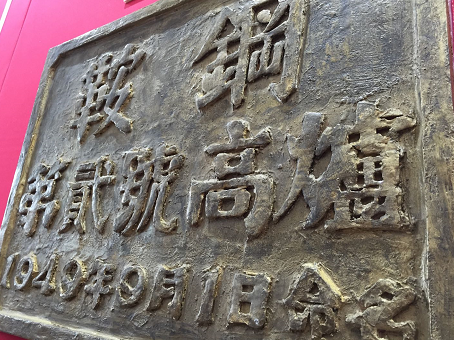 鞍鋼
第貳號高爐
1949年9月1日命名